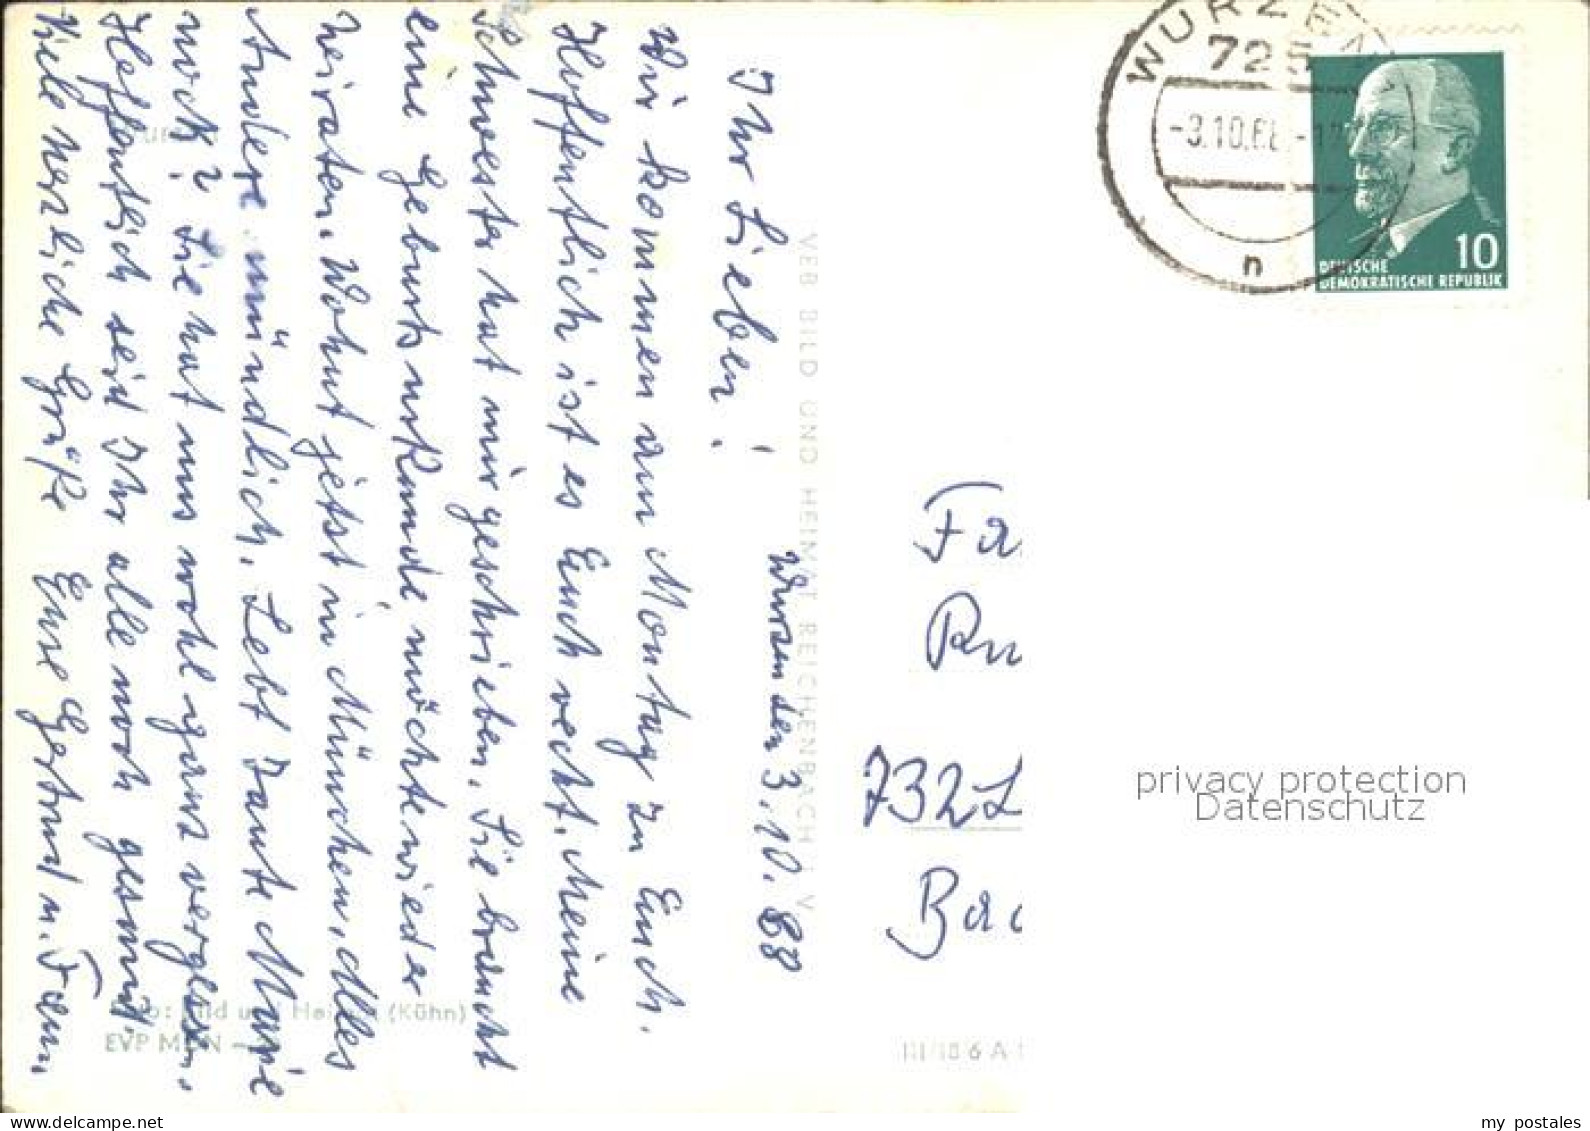 Wurzen den 3.10.68
Ihr Lieben!
Wir kommen am Montag zu Euch.
Hoffentlich ist es Euch recht. Meine
Schwester hat mir geschrieben. Sie braucht
eine Geburtsurkunde, möchte wieder
heiraten. Wohnt jetzt in München, alles
Andere mündlich. Lebt Tante Marie
noch? Sie hat uns wohl ganz vergessen.
Hoffentlich seid Ihr alle noch gesund.
Viele herzliche Grüße Eure Gertrud u. Fam.
VEB BILD UND HEIMAT REICHENBACH i. V.
Foto: Bild und Heimat (Kühn)
EVP MDN
WURZEN
725
-3.10.68.-
n
10
DEUTSCHE
DEMOKRATISCHE REPUBLIK
Fa
732 L
Bad
privacy protection
Datenschutz
III/18/6 A
my postales